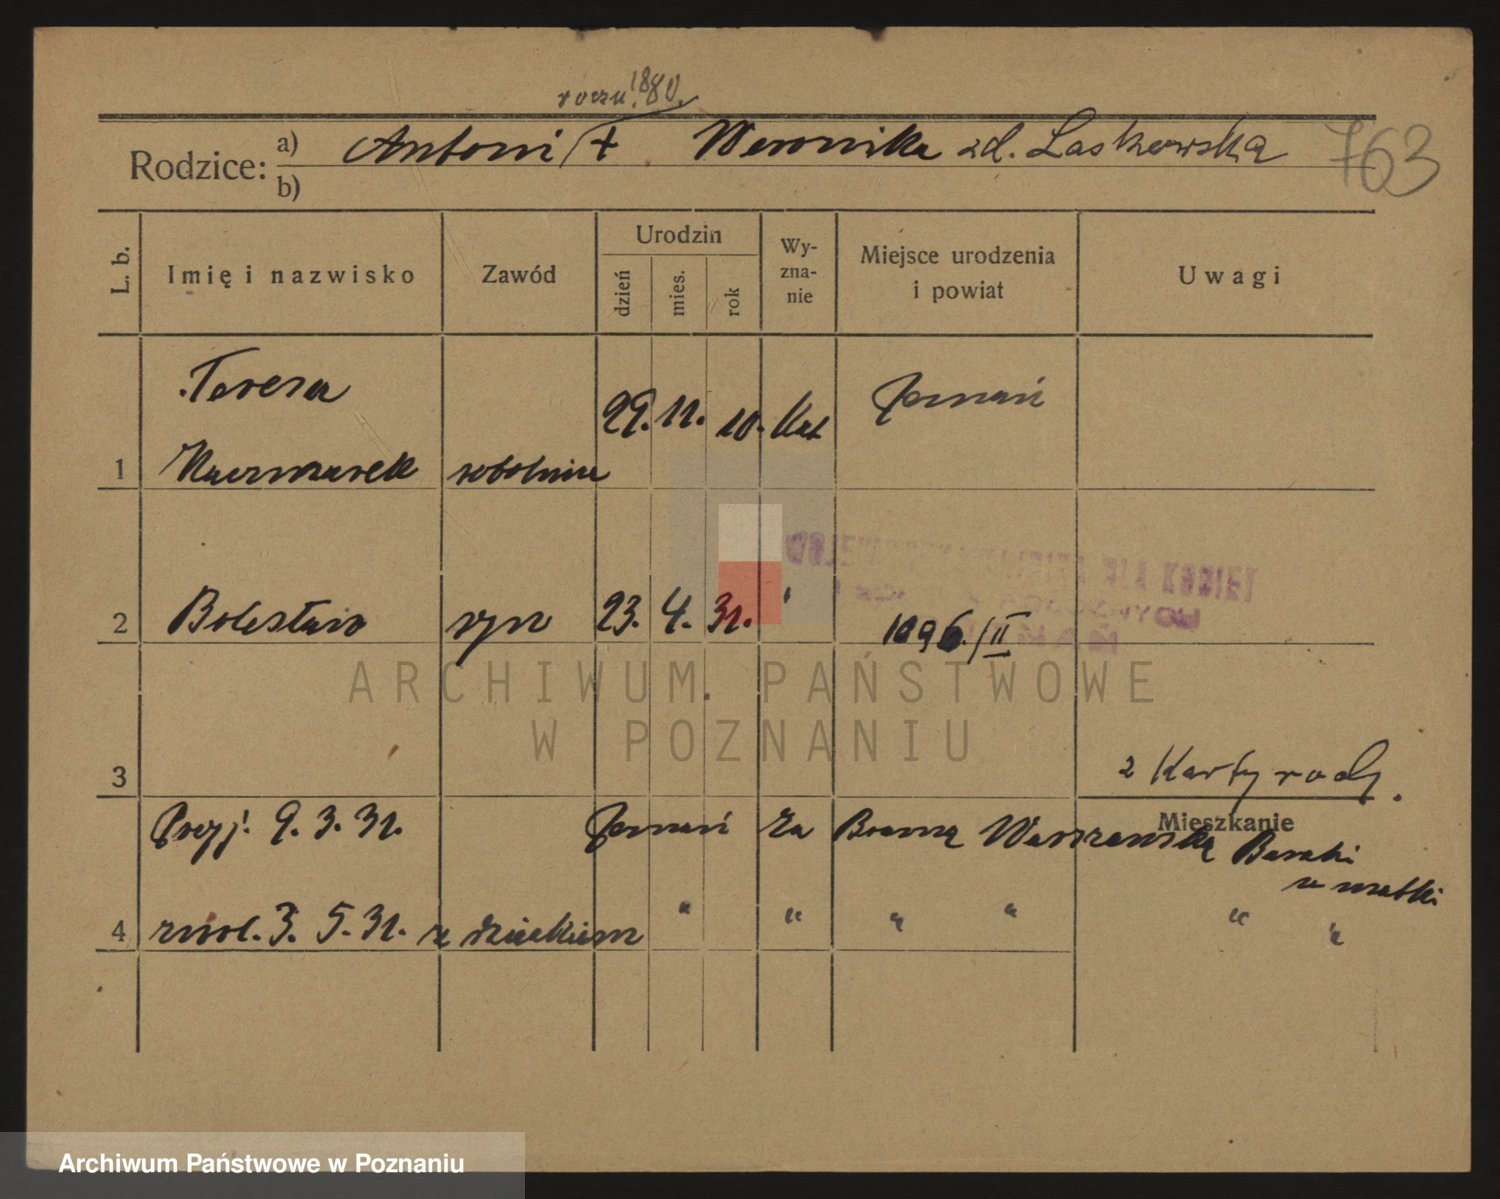 roczn. 1880.
Rodzice: a) Antoni / + Weronika zd. Laskowska 763
b)
L. b. Imię i nazwisko Zawód Urodzin dzień mies. rok Wyzna-nie Miejsce urodzenia i powiat Uwagi
Teresa
29. 11. 10. Kat Poznań
1 Kaczmarek robotnica
2 Bolesław syn 23. 4. 31. " 1096./II
ARCHIWUM PAŃSTWOWE
W POZNANIU
3 2 Karty rodz.
Mieszkanie
Przyj. 9. 3. 31. Poznań Za Bramą Warszawską Baraki
u matki
4 zwol. 3. 5. 31. z dzieckiem " " " " " "
Archiwum Państwowe w Poznaniu